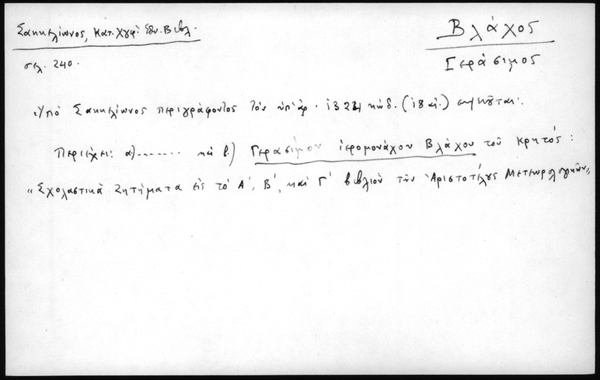 Σακκελίωνος, Κατ. Χγφ. Ἐθν. Βιβλ.
Βλάχος
Γεράσιμος
σελ. 240.
Ὑπὸ Σακκελίωνος περιγράφοντος τὸν ὑπ' ἀρ. 1322 κώδ. (18 αἰ.) σημειοῦται:
Περιέχει: α)........ καὶ β.) Γερασίμου ἱερομονάχου Βλάχου τοῦ Κρητός:
"Σχολαστικὰ Ζητήματα εἰς τὸ Α΄, Β΄, καὶ Γ΄ βιβλίον τῶν Ἀριστοτέλους Μετεωρολογικῶν"